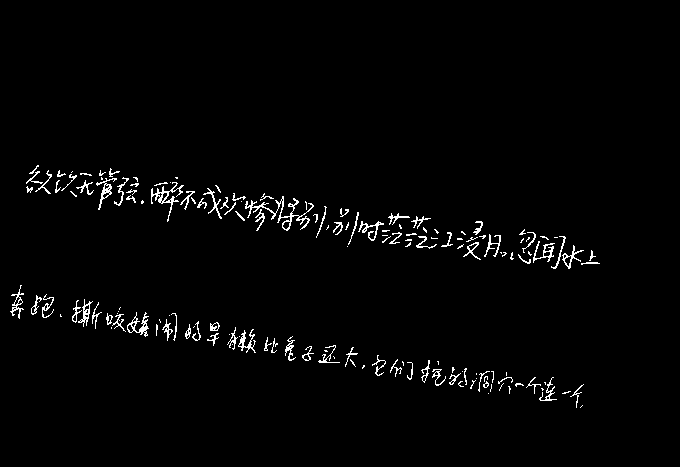 欲饮无管弦.醉不成欢惨将别,别时茫茫江浸月。忽闻水上
奔跑、撕咬嬉闹的旱獭比兔子还大,它们挖的洞穴一个连一个